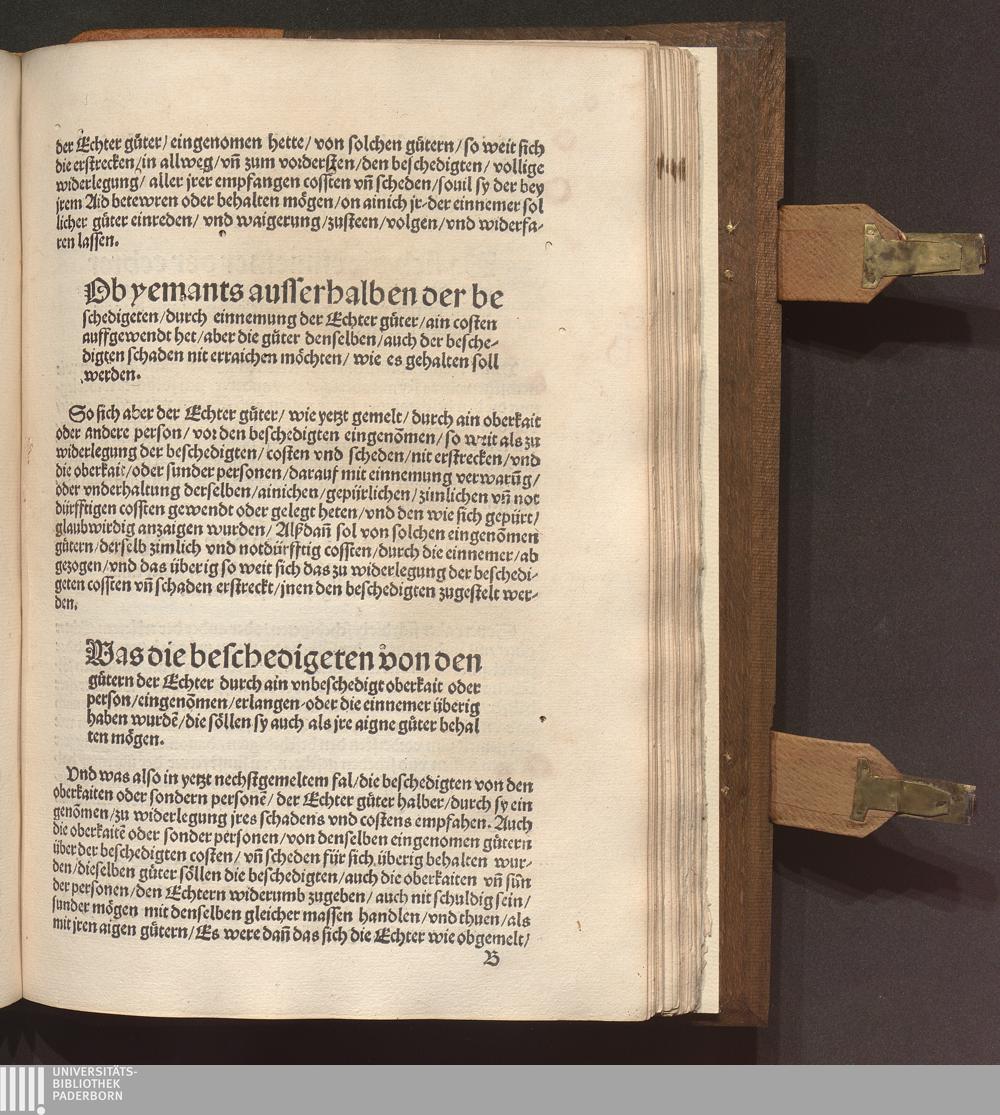 der Echter gůter/ eingenomen hette/ von solchen gütern/ so weit sich
die erstrecken/in allweg/ vñ zum vordersten/den beschedigten/ vollige
widerlegung/ aller jrer empfangen cossten vñ scheden/souil sy der bey
jrem Aid betewren oder behalten mögen/on ainich jr-der einnemer sol
licher güter einreden/ vnd waigerung/zusteen/volgen/vnd widerfa-
ren lassen.
Ob yemants ausserhalben der be
schedigeten/durch einnemung der Echter güter/ain costen
auffgewendt het/aber die güter denselben/auch der besche-
digten schaden nit erraichen möchten/ wie es gehalten soll
werden.
So sich aber der Echter güter/ wie yetzt gemelt/durch ain oberkait
oder andere person/ vor den beschedigten eingenõmen/ so weit als zu
widerlegung der beschedigten/ costen vnd scheden/nit erstrecken/vnd
die oberkait/oder sunder personen/darauf mit einnemung verwarũg/
oder vnderhaltung derselben/ainichen/gepürlichen/zimlichen vñ not
dürfftigen cossten gewendt oder gelegt heten/vnd den wie sich gepürt/
glaubwirdig anzaigen wurden/ Alßdañ sol von solchen eingenõmen
gütern/derselb zimlich vnd notdürfftig cossten/durch die einnemer/ab
gezogen/vnd das überig so weit sich das zu widerlegung der beschedi-
geten cossten vñ schaden erstreckt/jnen den beschedigten zugestelt wer-
den.
Was die beschedigeten von den
gütern der Echter durch ain vnbeschedigt oberkait oder
person/eingenõmen/erlangen-oder die einnemer überig
haben wurdẽ/die söllen sy auch als jre aigne güter behal
ten mögen.
Vnd was also in yetzt nechstgemeltem fal/die beschedigten von den
oberkaiten oder sondern personẽ/ der Echter güter halber/durch sy ein
genõmen/zu widerlegung jres schadens vnd costens empfahen. Auch
die oberkaitẽ oder sonder personen/von denselben eingenomen gütern
über der beschedigten costen/ vñ scheden für sich überig behalten wur-
den/dieselben güter söllen die beschedigten/auch die oberkaiten vñ sũn
der personen/den Echtern widerumb zugeben/ auch nit schuldig sein/
sunder mögen mit denselben gleicher massen handlen/vnd thuen/als
mit jren aigen gütern/Es were dañ das sich die Echter wie obgemelt/
B
UNIVERSITÄTS-
BIBLIOTHEK
PADERBORN